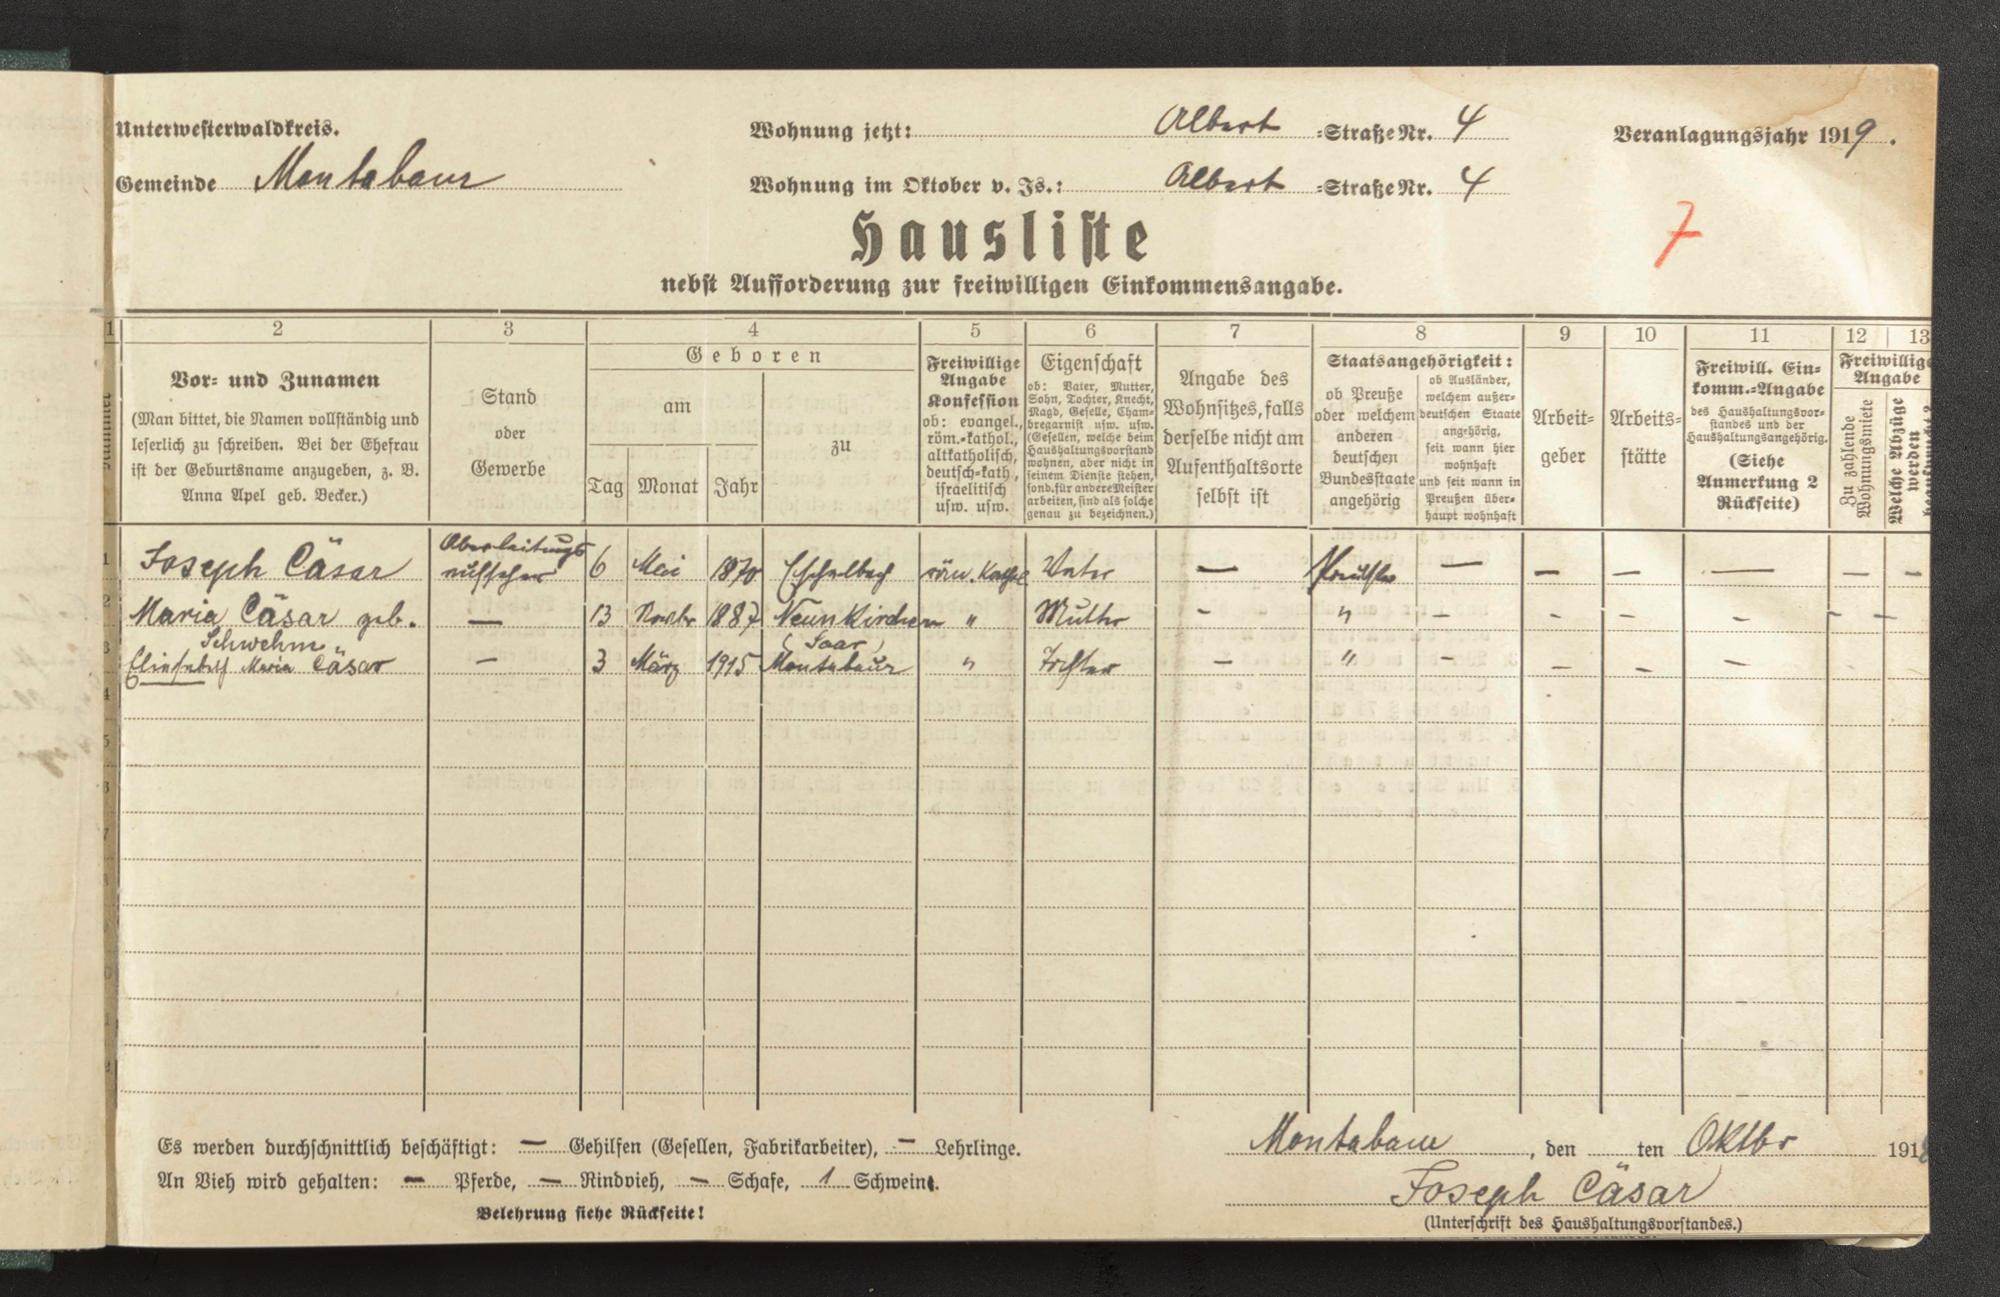 Unterwesterwaldkreis.
Gemeinde Montabaur
Wohnung jetzt: Albert =Straße Nr. 4
Wohnung im Oktober v. Js.: Albert =Straße Nr. 4
Veranlagungsjahr 1919.
7
Hausliste
nebst Aufforderung zur freiwilligen Einkommensangabe.
1 2 3 4 5 6 7 8 9 10 11 12 13
Vor- und Zunamen
(Man bittet, die Namen vollständig und
leserlich zu schreiben. Bei der Ehefrau
ist der Geburtsname anzugeben, z. B.
Anna Apel geb. Becker.)
Stand
oder
Gewerbe
Geboren
am
Tag Monat Jahr
zu
Freiwillige
Angabe
Konfession
ob: evangel.,
röm.-kathol.,
altkatholisch,
deutsch-kath,
israelitisch
usw. usw.
Eigenschaft
ob: Vater, Mutter,
Sohn, Tochter, Knecht,
Magd, Geselle, Cham-
bregarnist usw. usw.
(Gesellen, welche beim
Haushaltungsvorstand
wohnen, aber nicht in
seinem Dienste stehen,
sond. für andere Meister
arbeiten, sind als solche
genau zu bezeichnen.)
Angabe des
Wohnsitzes, falls
derselbe nicht am
Aufenthaltsorte
selbst ist
Staatsangehörigkeit:
ob Preuße
oder welchem
anderen
deutschen
Bundesstaate
angehörig
ob Ausländer,
welchem außer-
deutschen Staate
angehörig,
seit wann hier
wohnhaft
und seit wann in
Preußen über-
haupt wohnhaft
Arbeit-
geber
Arbeits-
stätte
Freiwill. Ein-
komm.-Angabe
des Haushaltungsvor-
standes und der
Haushaltungsangehörig.
(Siehe
Anmerkung 2
Rückseite)
Freiwillige
Angabe
Zu zahlende
Wohnungsmiete
Welche Abzüge
werden
1 Joseph Cäsar Oberleitungs 6 Mai 1870 Eschelbach röm. Kathol Vater — Preuße — — — — — —
aufseher
2 Maria Cäsar geb. — 13 Novbr 1887 Neunkirchen " Mutter - " — - - - - -
Schwehm (Saar)
3 Elisabeth Maria Cäsar — 3 März 1915 Montabaur " Tochter — " - - - —
4
5
7
Es werden durchschnittlich beschäftigt: — Gehilfen (Gesellen, Fabrikarbeiter), — Lehrlinge.
An Vieh wird gehalten: — Pferde, — Rindvieh, — Schafe, 1 Schwein.
Belehrung siehe Rückseite!
Montabaur, den ten Oktbr 1918
Joseph Cäsar
(Unterschrift des Haushaltungsvorstandes.)